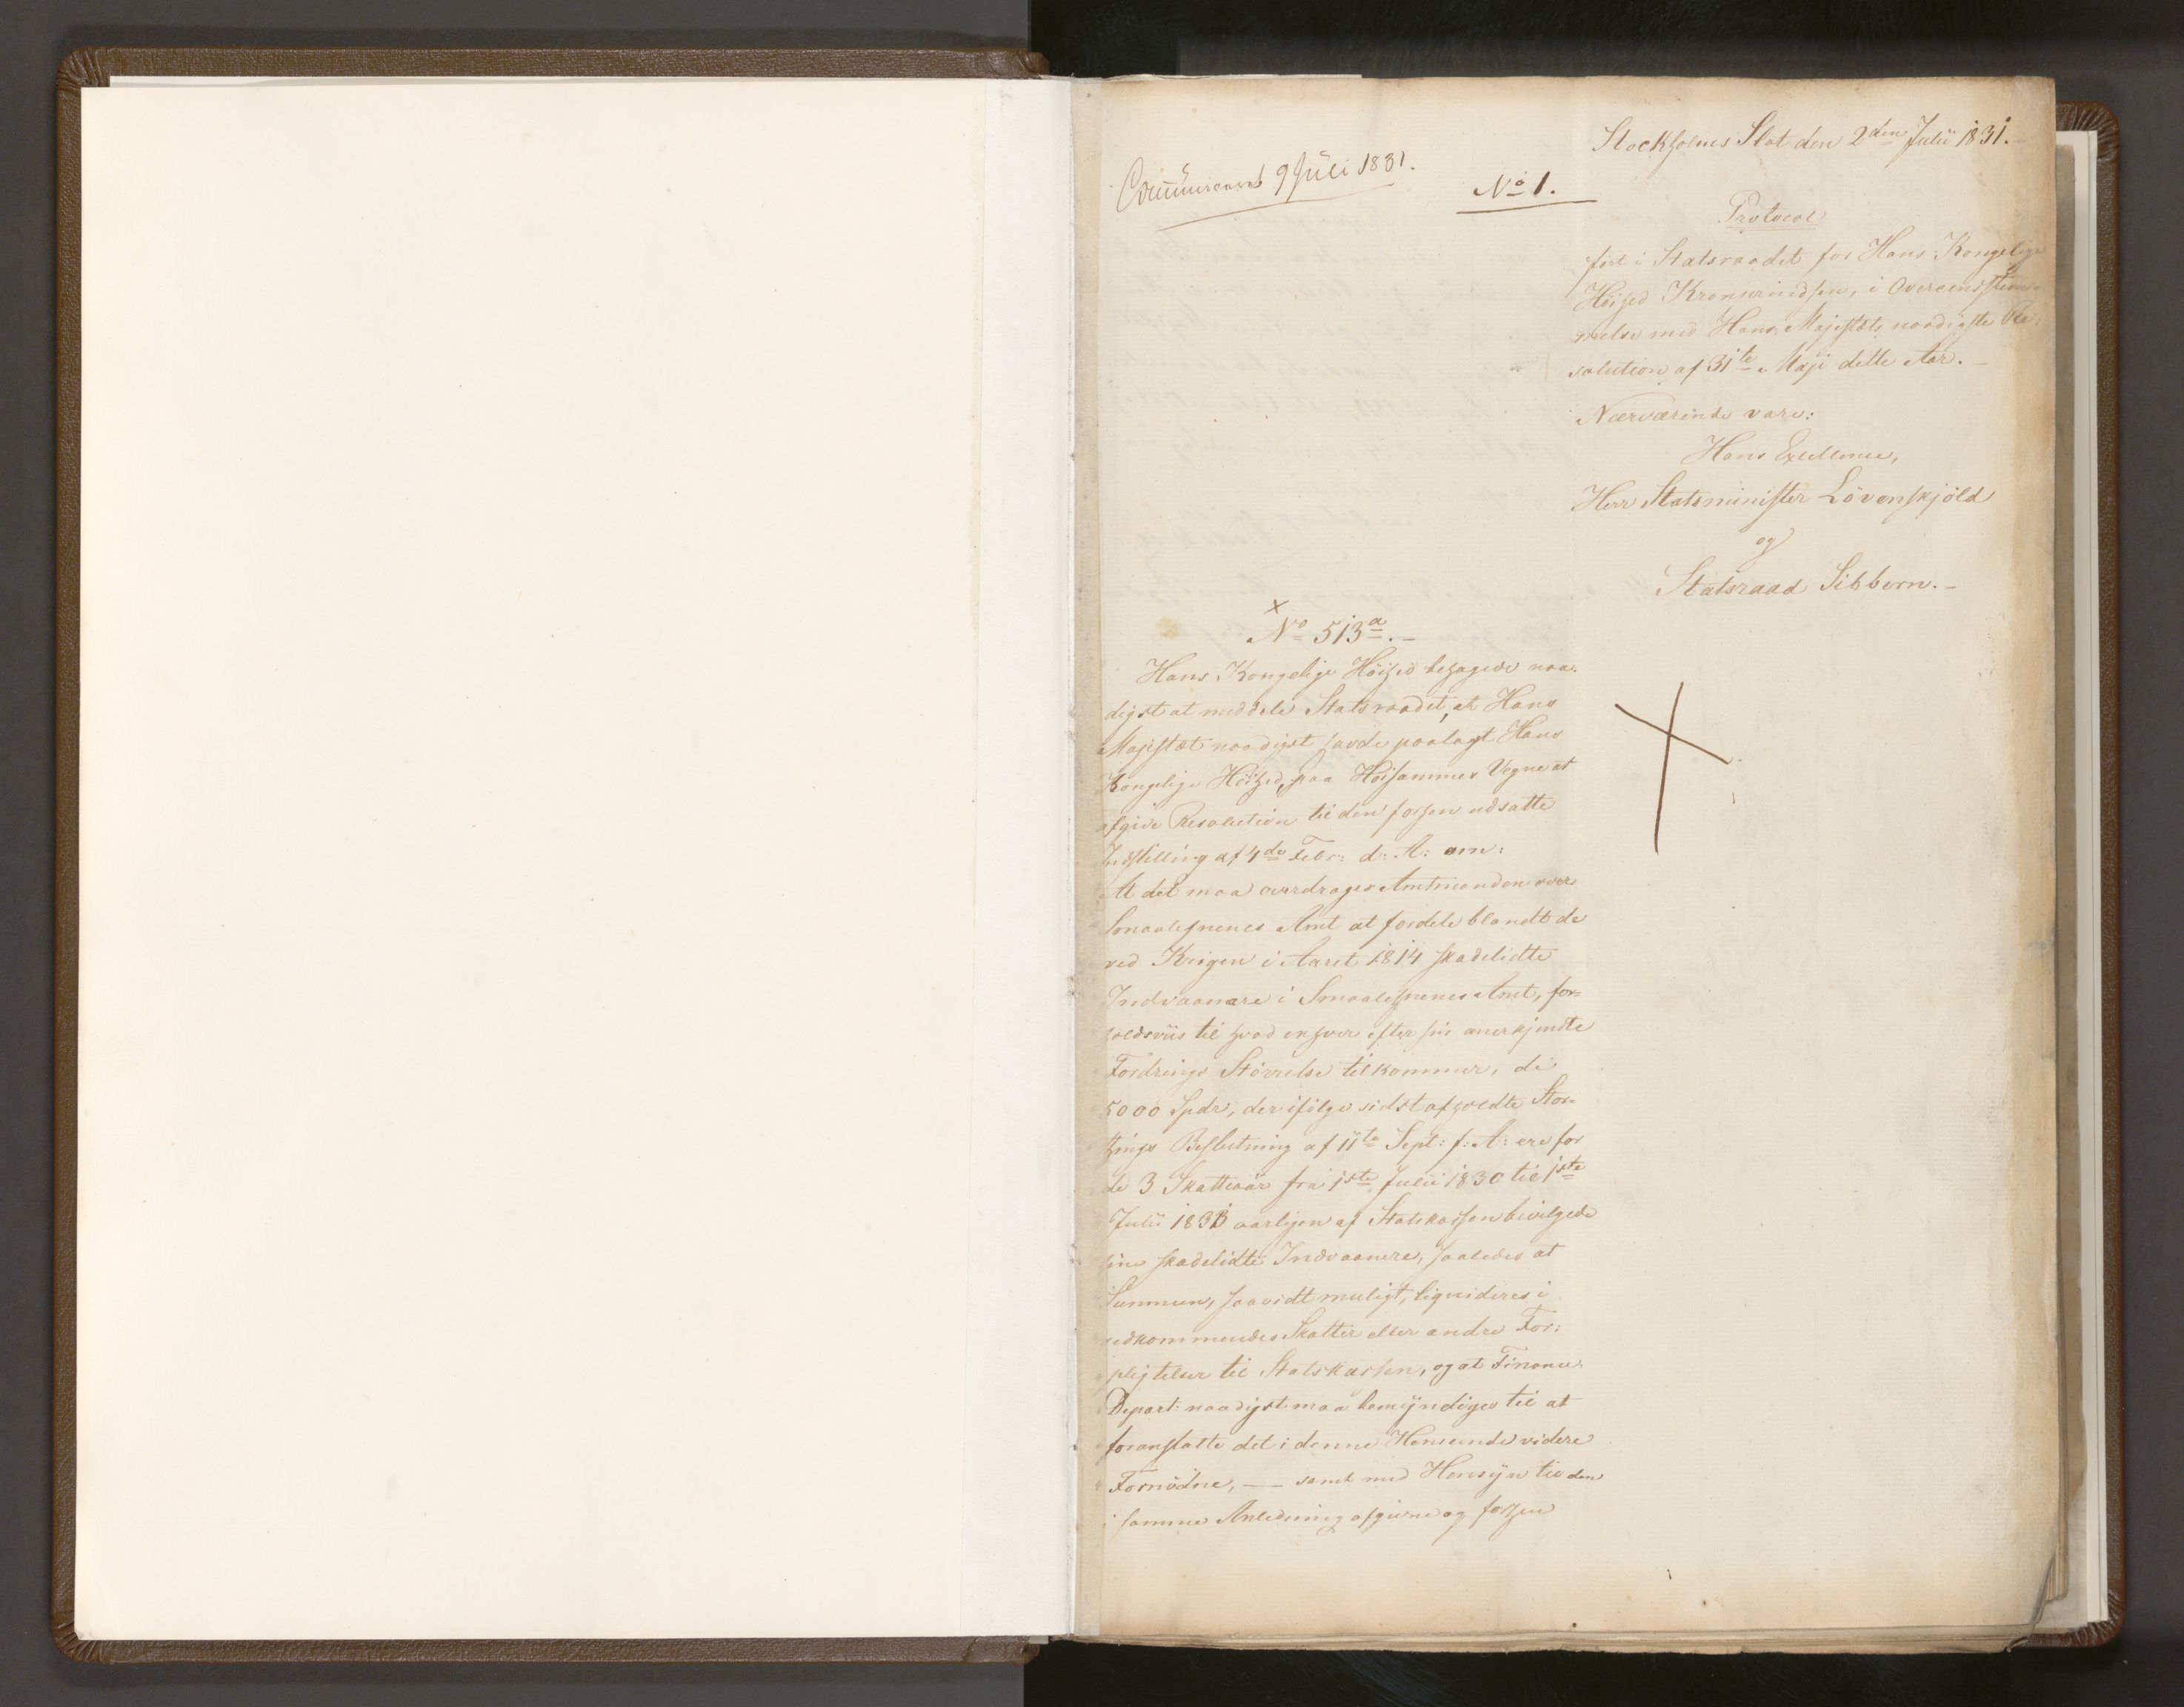 Stockholms Slot den 2den Julii 1831.-
Communiceret 9 Juli 1831.
No 1.
Protocol
ført i Statsraadet for Hans Kongelige
Höihed Kronprindsen, i Overeensstem-
melse med Hans Majestæts naadigste Re-
solution af 31te Maji dette Aar.-
Nærværende vare:
Hans Excellence,
Herr Statsminister Lövenskjöld
og
Statsraad Sibbern.-
No 513a.-
Hans Kongelige Höihed behagede naa-
digst at meddele Statsraadet, at Hans
Majestæt naadigst havde paalagt Hans
Kongelige Höihed, paa Höisammes Vegne at
afgive Resolution til den forhen udsatte
Indstilling af 4de Febr: d: A: om:
At det maa overdrages Amtmanden over
Smaalehnenes Amt at fordele blandt de
ved Krigen i Aaret 1814 skadelidte
Indvaanere i Smaalehnenes Amt, for-
holdsviis til hvad enhver efter sin anerkjendte
Fordrings Störrelse tilkommer, de
5000 Spdr, der ifölge sidst afholdte Stor-
things Beslutning af 11te Sept: f: A: ere for
de 3 Skatteaar fra 1ste Julii 1830 til 1ste
Julii 1833 aarligen af Statskassen bevilgede
sine skadelidte Indvaanere, saaledes at
Summen, saavidt muligt, liqvideres i
vedkommendes Skatter eller andre For-
pligtelser til Statskassen, og at Finance
Depart: naadigst maa bemyndiges til at
foranstalte det i denne Henseende videre
Fornödne, — samt med Hensyn til den
i samme Anledning afgivne og forhen